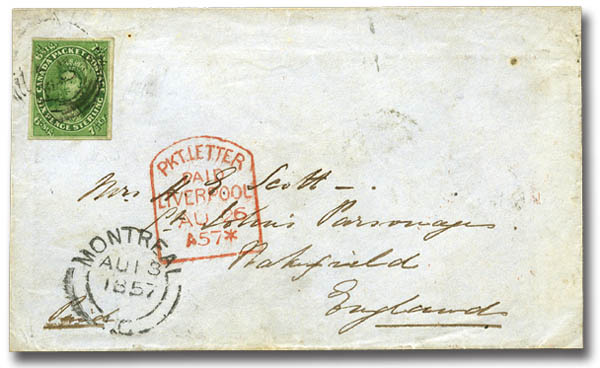 CANADA PACKET POSTAGE
SIX PENCE STERLING
PKT. LETTER
PAID
LIVERPOOL
AU 26
A57*
Mrs Scott —
St John's Parsonage
Wakefield
England
Paid
MONTREAL
AU 13
1857